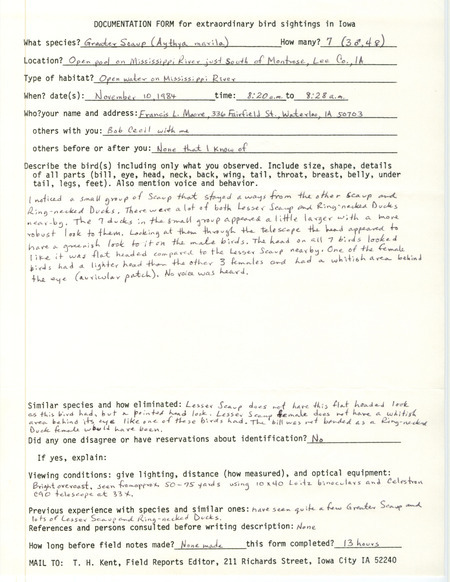 DOCUMENTATION FORM for extraordinary bird sightings in Iowa
What species? Greater Scaup (Aythya marila) How many? 7 (3♂,4♀)
Location? Open pool on Mississippi River just South of Montrose, Lee Co., IA
Type of habitat? Open water on Mississippi River
When? date(s): November 10, 1984 time: 8:20 a.m to 8:28 a.m.
Who?your name and address: Francis L. Moore, 336 Fairfield St. Waterloo, IA 50703
others with you: Bob Cecil with me
others before or after you: None that I know of
Describe the bird(s) including only what you observed. Include size, shape, details
of all parts (bill, eye, head, neck, back, wing, tail, throat, breast, belly, under
tail, legs, feet). Also mention voice and behavior.
I noticed a small group of Scaup that stayed a ways from the other Scaup and
Ring-necked Ducks. There were a lot of both Lesser Scaup and Ring-necked Ducks
near-by. The 7 ducks in the small group appeared a little larger with a more
robust look to them. Looking at them through the telescope the head appeared to
have a greenish look to it on the male birds. The head on all 7 birds looked
like it was flat headed compared to the Lesser Scaup nearby. One of the female
birds had a lighter head than the other 3 females and had a whitish area behind
the eye (auricular patch). No voice was heard.
Similar species and how eliminated: Lesser Scaup does not have this flat headed look
as this bird had, but a pointed head look. Lesser Scaup female does not have a whitish
area behind its eye like one of these birds had. The bill was not banded as a Ring-necked
Duck female would have been.
Did any one disagree or have reservations about identification? No
If yes, explain:
Viewing conditions: give lighting, distance (how measured), and optical equipment:
Bright overcast, seen from approx 50-75 yards using 10x40 Leitz binoculars and Celestron
C90 telescope at 33X.
Previous experience with species and similar ones: have seen quite a few Greater Scaup and
lots of Lesser Scaup and Ring-necked Ducks.
References and persons consulted before writing description: None
How long before field notes made? None made this form completed? 13 hours
MAIL TO: T. H. Kent, Field Reports Editor, 211 Richards Street, Iowa City IA 52240